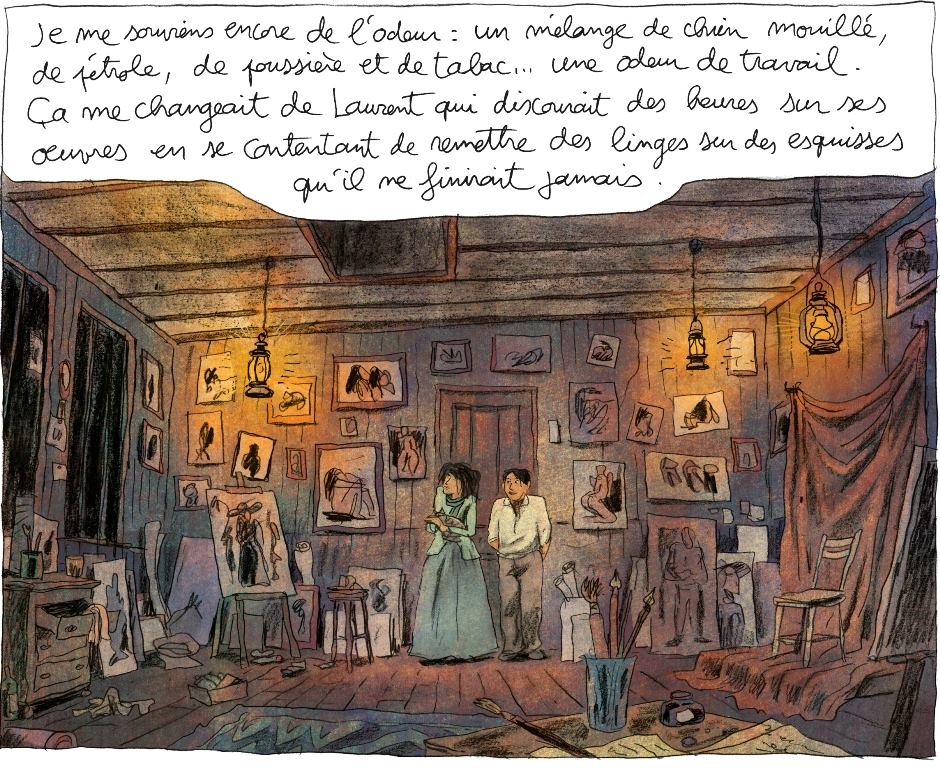 Je me souviens encore de l'odeur : un mélange de chien mouillé,
de pétrole, de poussière et de tabac... une odeur de travail.
Ça me changeait de Laurent qui discourait des heures sur ses
œuvres en se contentant de remettre des linges sur des esquisses
qu'il ne finirait jamais.